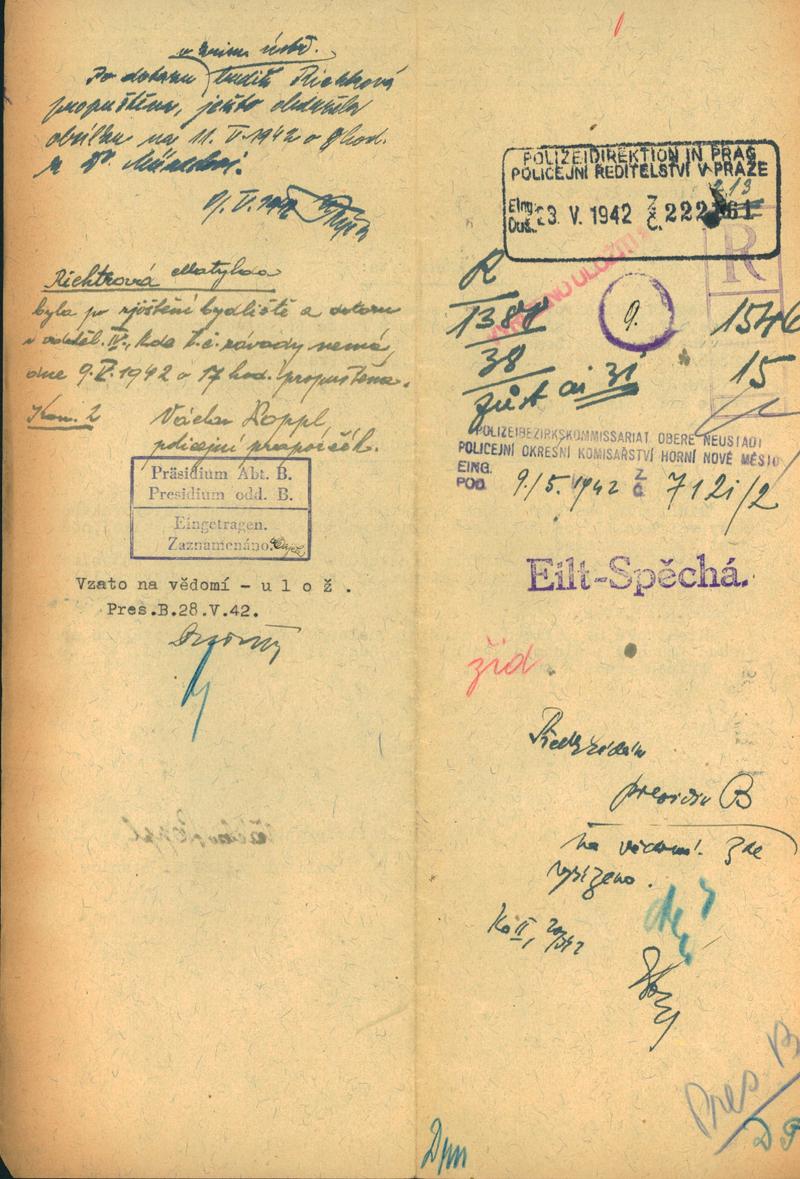 v zním. ústř.
Po dotazu tudíž Richtrová
propuštěna, ježto obdržela
obsílku na 11. V. 1942 o 8 hod.
k Dr.
9. V. 1942
Richtrová Matylda
byla po zjištění bydliště a dotazu
v odděl. IV., kde t. č. závady nemá,
dne 9. V. 1942 o 17 hod. propuštěna.
Kom. 2 Václav Koppl
policejní praporčík.
Präsidium Abt. B.
Presidium odd. B.
Eingetragen.
Zaznamenáno.
Vzato na vědomí - u l o ž .
Pres.B.28.V.42.
POLIZEIDIREKTION IN PRAG
POLICEJNÍ ŘEDITELSTVÍ V PRAZE
Eing. 23. V. 1942 Z. 222
Doš. Č.
R
R
138
9.
1546
38
15
31
POLIZEIBEZIRKSKOMMISSARIAT OBERE NEUSTADT
POLICEJNÍ OKRESNÍ KOMISAŘSTVÍ HORNÍ NOVÉ MĚSTO
EING. 9./5. 1942 Z 712i/2
POD. Č
Eilt-Spěchá.
žid
Předkládám
presidiu B
na vědomí. Zde
vyřízeno.
Ko II,
Pres B